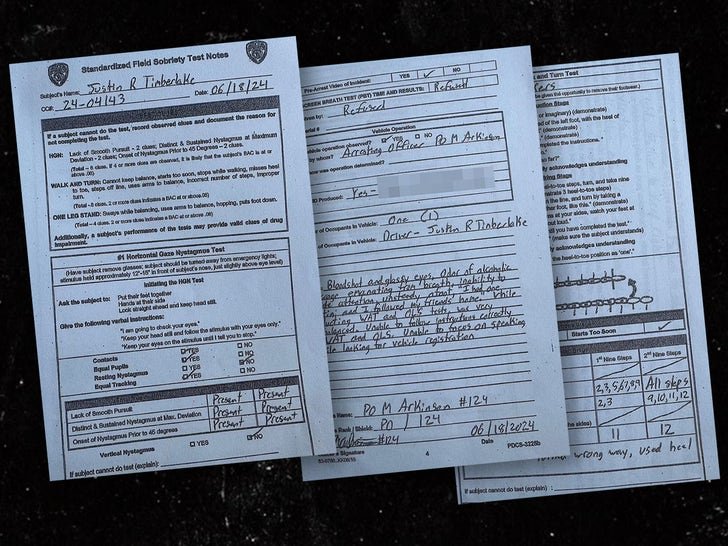 Standardized Field Sobriety Test Notes
Subject's Name: Justin R Timberlake
CC#: 24-04143 Date: 06/18/24
If a subject cannot do the test, record observed clues and document the reason for
not completing the test.
HGN: Lack of Smooth Pursuit - 2 clues; Distinct & Sustained Nystagmus at Maximum
Deviation - 2 clues; Onset of Nystagmus Prior to 45 Degrees – 2 clues.
(Total – 6 clues. If 4 or more clues are observed, it is likely that the subject's BAC is at or
above .08)
WALK AND TURN: Cannot keep balance, starts too soon, stops while walking, misses heel
to toe, steps off line, uses arms to balance, incorrect number of steps, improper
turn.
(Total –8 clues. 2 or more clues indicates a BAC at or above .08)
ONE LEG STAND: Sways while balancing, uses arms to balance, hopping, puts foot down.
(Total –4 clues. 2 or more clues indicates a BAC at or above .08)
Additionally, a subject's performance of the tests may provide valid clues of drug
impairment.
#1 Horizontal Gaze Nystagmus Test
(Have subject remove glasses; subject should be turned away from emergency lights;
stimulus held approximately 12"-15" in front of subject's nose, just slightly above eye level)
Initiating the HGN Test
Ask the subject to: Put their feet together
Hands at their side
Look straight ahead and keep head still.
Give the following verbal instructions:
"I am going to check your eyes."
"Keep your head still and follow the stimulus with your eyes only."
"Keep your eyes on the stimulus until I tell you to stop."
Contacts YES NO
Equal Pupils YES NO
Resting Nystagmus YES NO
Equal Tracking YES NO
Lack of Smooth Pursuit Present Present
Distinct & Sustained Nystagmus at Max. Deviation Present Present
Onset of Nystagmus Prior to 45 degrees Present Present
Vertical Nystagmus YES NO
If subject cannot do test (explain):
Pre-Arrest Video of Incident: YES NO
SCREEN BREATH TEST (PBT) TIME AND RESULTS: Refused
by: Refused
Vehicle Operation
vehicle operation observed? YES NO
by whom? Arresting Officer PO M Arkinson
was operation determined?
Produced: Yes-
of Occupants in Vehicle: One (1)
of Occupants in Vehicle: Driver- Justin R Timberlake
Bloodshot and glassy eyes, odor of alcoholic
emanating from breath, inability to
attention, unsteady afoot. I had one
and I followed my friends home. While
WAT and OLS tests, was very
Unable to follow instructions correctly
WAT and OLS. Unable to focus on speaking
while looking for vehicle registration
Name: PO M Arkinson #124
Rank / Shield: PO / 124
#124 06/18/2024
Signature Date
4 PDCS-3225b
and Turn Test
be given the opportunity to remove their footwear.)
Stage
or imaginary) (demonstrate)
of the left foot, with the heel of
(demonstrate)
(demonstrate)
completed the instructions.
acknowledges understanding
Stage
heel-to-toe steps, turn, and take nine
3 heel-to-toe steps)
the line, and turn by taking a
foot, like this." (demonstrate)
at your sides, watch your feet at
out loud.
until you have completed the test."
(make sure the subject understands)
acknowledges understanding
the heel-to-toe position as 'one'."
Starts Too Soon
1st Nine Steps 2nd Nine Steps
2,3,5,6,7,8,9 All steps
2,3 9,10,11,12
11 12
wrong way, used heel
If subject cannot do test (explain) :